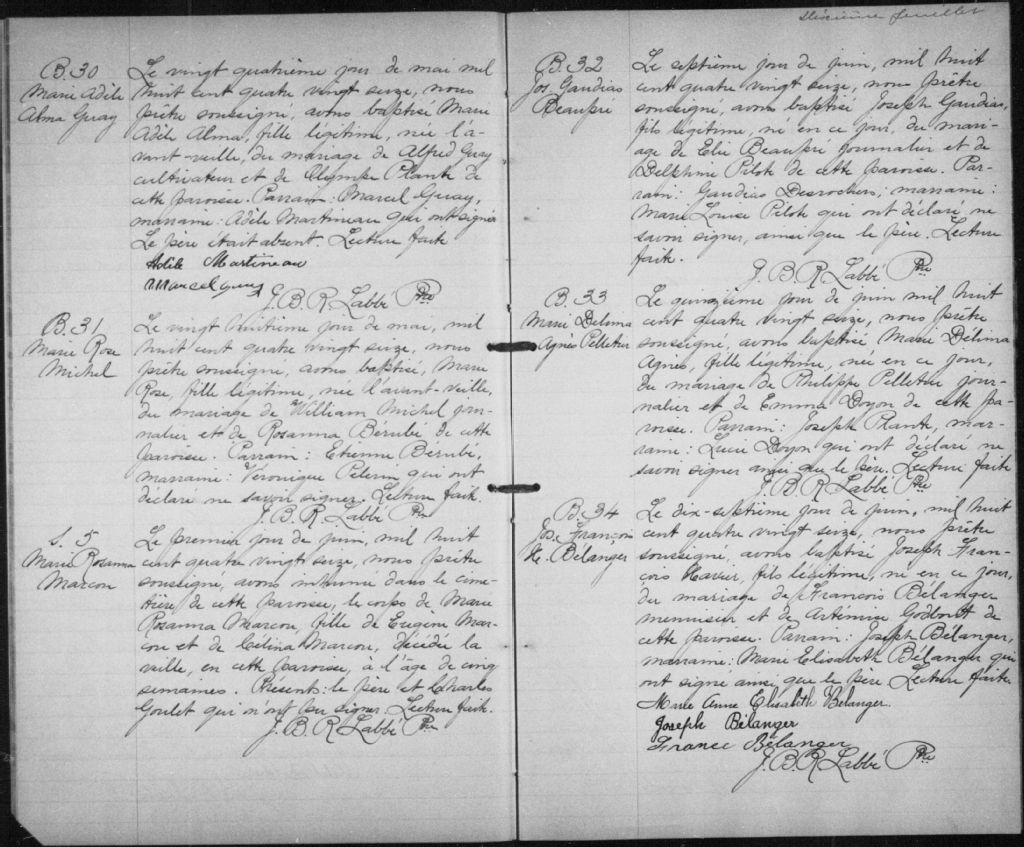 B. 30
Marie Adèle
Alma Guay
Le vingt quatrième jour de mai mil
huit cent quatre vingt seize, nous
prêtre soussigné, avons baptisé Marie
Adèle Alma, fille légitime, née l'a-
vant-veille, du mariage de Alfred Guay
cultivateur et de Olympe Plante de
cette paroisse. Parrain: Marcel Guay,
marraine: Adèle Martineau qui ont signé
Le père était absent. Lecture faite
Adèle Martineau
Marcel guay
J. B. R. Labbé Ptre
B. 31
Marie Rose
Michel
Le vingt huitième jour de mai, mil
huit cent quatre vingt seize, nous
prêtre soussigné, avons baptisé, Marie
Rose, fille légitime, née l'avant-veille,
du mariage de William Michel jour-
nalier et de Rosanna Bérubé de cette
paroisse. Parrain: Etienne Bérubé,
marraine: Véronique Pelerin qui ont
déclaré ne savoir signer. Lecture faite.
J. B. R. Labbé Ptre
S. 5
Marie Rosanna
Marcou
Le premier jour de juin, mil huit
cent quatre vingt seize, nous prêtre
soussigné, avons inhumé dans le cime-
tière de cette paroisse, le corps de Marie
Rosanna Marcou, fille de Eugène Mar-
cou et de Célina Marcou, décédée la
veille, en cette paroisse, à l'âge de cinq
semaines. Présents: le père et Charles
Goulet qui n'ont su signer. Lecture faite.
J. B. R. Labbé Ptre
feuillet
B. 32
Jos. Gaudias
Beaupré
Le septième jour de juin, mil huit
cent quatre vingt seize, nous prêtre
soussigné, avons baptisé Joseph Gaudias,
fils légitime, né en ce jour, du mari-
age de Elie Beaupré journalier et de
Delphine Pilote de cette paroisse. Par-
rain: Gaudias Desrochers, marraine:
Marie Louise Pilote qui ont déclaré ne
savoir signer, ainsi que le père. Lecture
faite.
J. B. R. Labbé Ptre
B. 33
Marie Délima
Agnès Pelletier
Le quinzième jour de juin mil huit
cent quatre vingt seize, nous prêtre
soussigné, avons baptisée Marie Délima
Agnès, fille légitime, née en ce jour,
du mariage de Philippe Pelletier jour-
nalier et de Emma Doyon de cette pa-
roisse. Parrain: Joseph Plante, mar-
raine: Lucie Doyon qui ont déclaré ne
savoir signer ainsi que le père. Lecture faite
J. B. R. Labbé Ptre
B. 34
Jos. François
Xe. Bélanger
Le dix-septième jour de juin, mil huit
cent quatre vingt seize, nous prêtre
soussigné, avons baptisé Joseph Fran-
cois Xavier, fils légitime, né en ce jour,
du mariage de François Bélanger
menuisier et de Artémise Godbout de
cette paroisse. Parrain: Joseph Bélanger,
marraine: Marie Elisabeth Bélanger qui
ont signé ainsi que le père Lecture faite.
Marie Anne Elisabeth Bélanger.
Joseph Bélanger
France Bélanger
J. B. R. Labbé Ptre